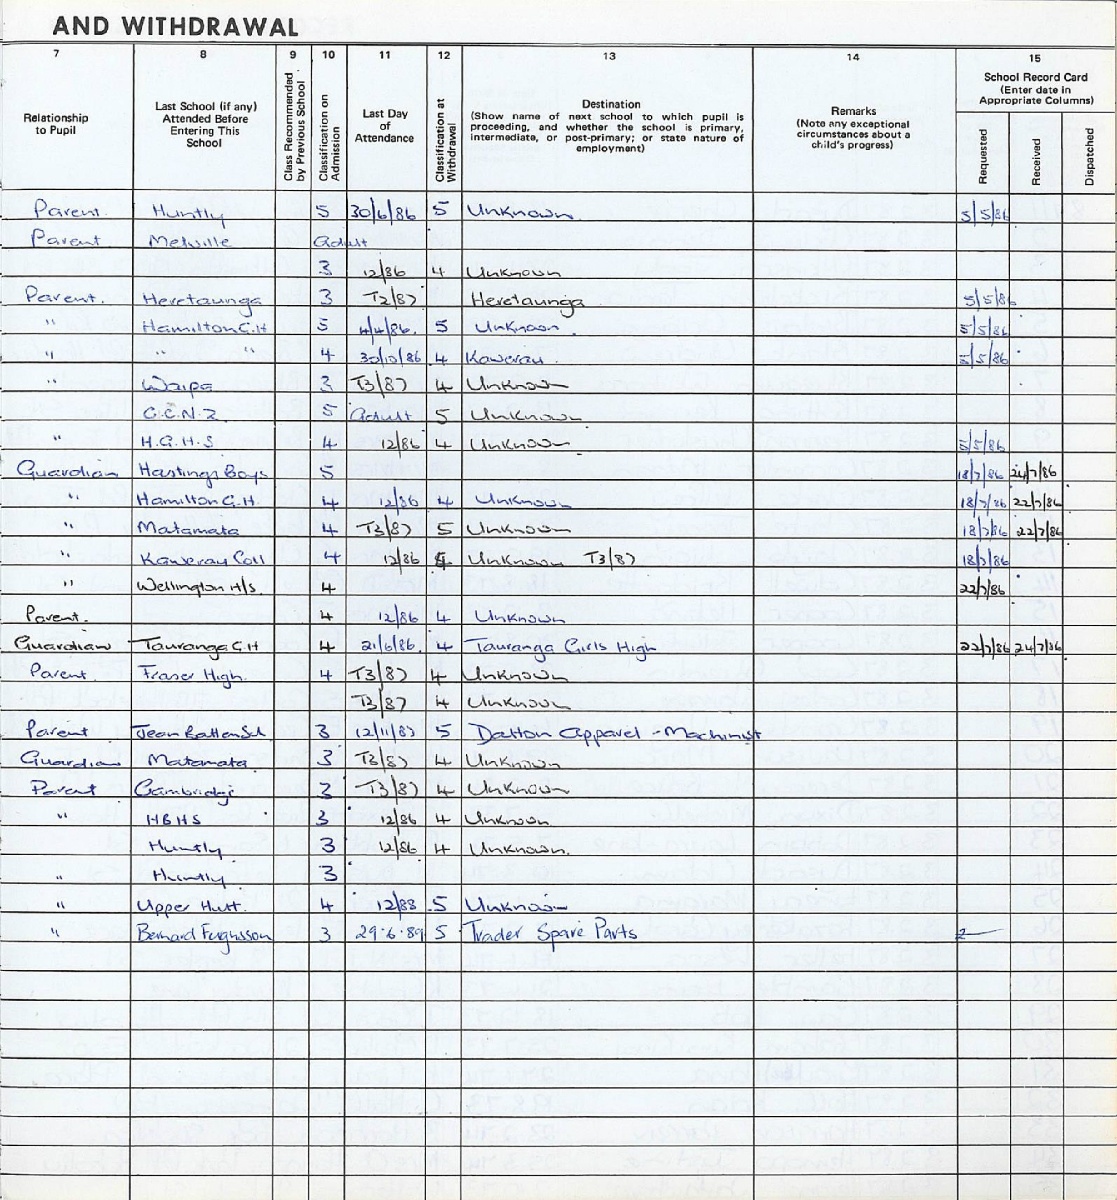 AND WITHDRAWAL
7 8 9 10 11 12 13 14 15
Relationship to Pupil
Last School (if any) Attended Before Entering This School
Class Recommended by Previous School
Classification on Admission
Last Day of Attendance
Classification at Withdrawal
Destination
(Show name of next school to which pupil is proceeding, and whether the school is primary, intermediate, or post-primary; or state nature of employment)
Remarks
(Note any exceptional circumstances about a child's progress)
School Record Card
(Enter date in Appropriate Columns)
Requested
Received
Dispatched
Parent. Huntly 5 30/6/86 5 Unknown 5/5/86
Parent Melville Adult
3 12/86 4 Unknown
Parent. Heretaunga 3 T2/87 Heretaunga 5/5/86
" Hamilton G.H 5 4/4/86. 5 Unknown. 5/5/86
" " " 4 30/10/86 4 Kawerau. 5/5/86
" Waipa 3 T3/87 4 Unknown
C.C.N.Z 5 Adult 5 Unknown
" H.G.H.S 4 12/86 4 Unknown 5/5/86
Guardian Hastings Boys 5 18/7/86 24/7/86
" Hamilton G.H. 4 12/86 4 Unknown 18/7/86 22/7/86
" Matamata 4 T3/87 5 Unknown 18/7/86 22/7/86
" Kawerau Coll 4 12/86 4 Unknown T3/87 18/7/86
" Wellington H/S. 4 22/7/86
Parent. 4 12/86 4 Unknown
Guardian Tauranga G.H 4 21/6/86. 4 Tauranga Girls High 22/7/86 24/7/86
Parent. Fraser High. 4 T3/87 4 Unknown
T3/87 4 Unknown
Parent Jean Batten Sch 3 12/11/87 5 Dalton Apparel - Machinist
Guardian Matamata 3 T3/87 4 Unknown
Parent Cambridge 3 T3/87 4 Unknown
" HBHS 3 12/86 4 Unknown
Huntly 3 12/86 4 Unknown.
" Huntly 3
" Upper Hutt. 4 12/88 5 Unknown
" Bernard Fergusson 3 29.6.89 5 Trader Spare Parts